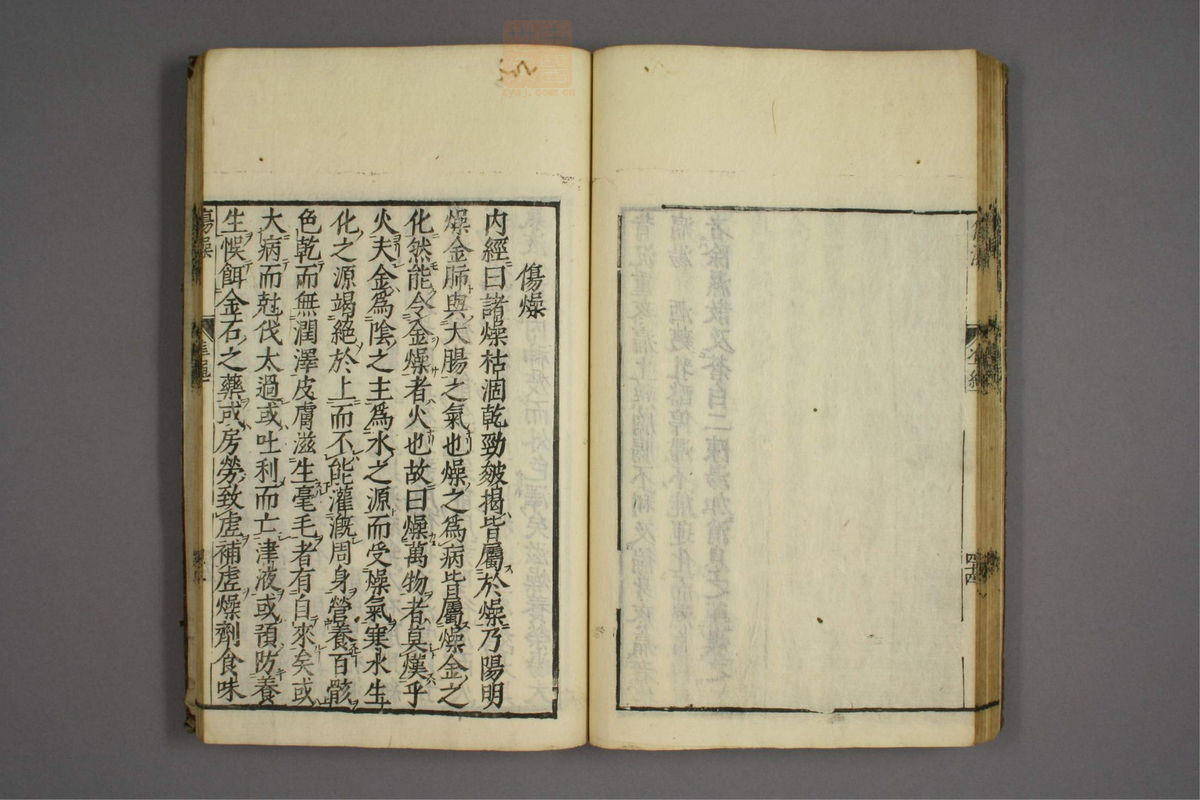 四十四
傷燥
內經曰諸燥枯涸乾勁皴揭皆屬於燥乃陽明
燥金肺與大腸之氣也燥之爲病皆屬燥金之
化然能令金燥者火也故曰燥萬物者莫熯乎
火夫金爲陰之主爲水之源而受燥氣寒水生
化之源竭絕於上而不能灌溉周身營養百骸
色乾而無潤澤皮膚滋生毫毛者有自來矣或
大病而尅伐太過或吐利而亡津液或預防養
生悞餌金石之藥或房勞致虛補虛燥劑食味
傷燥